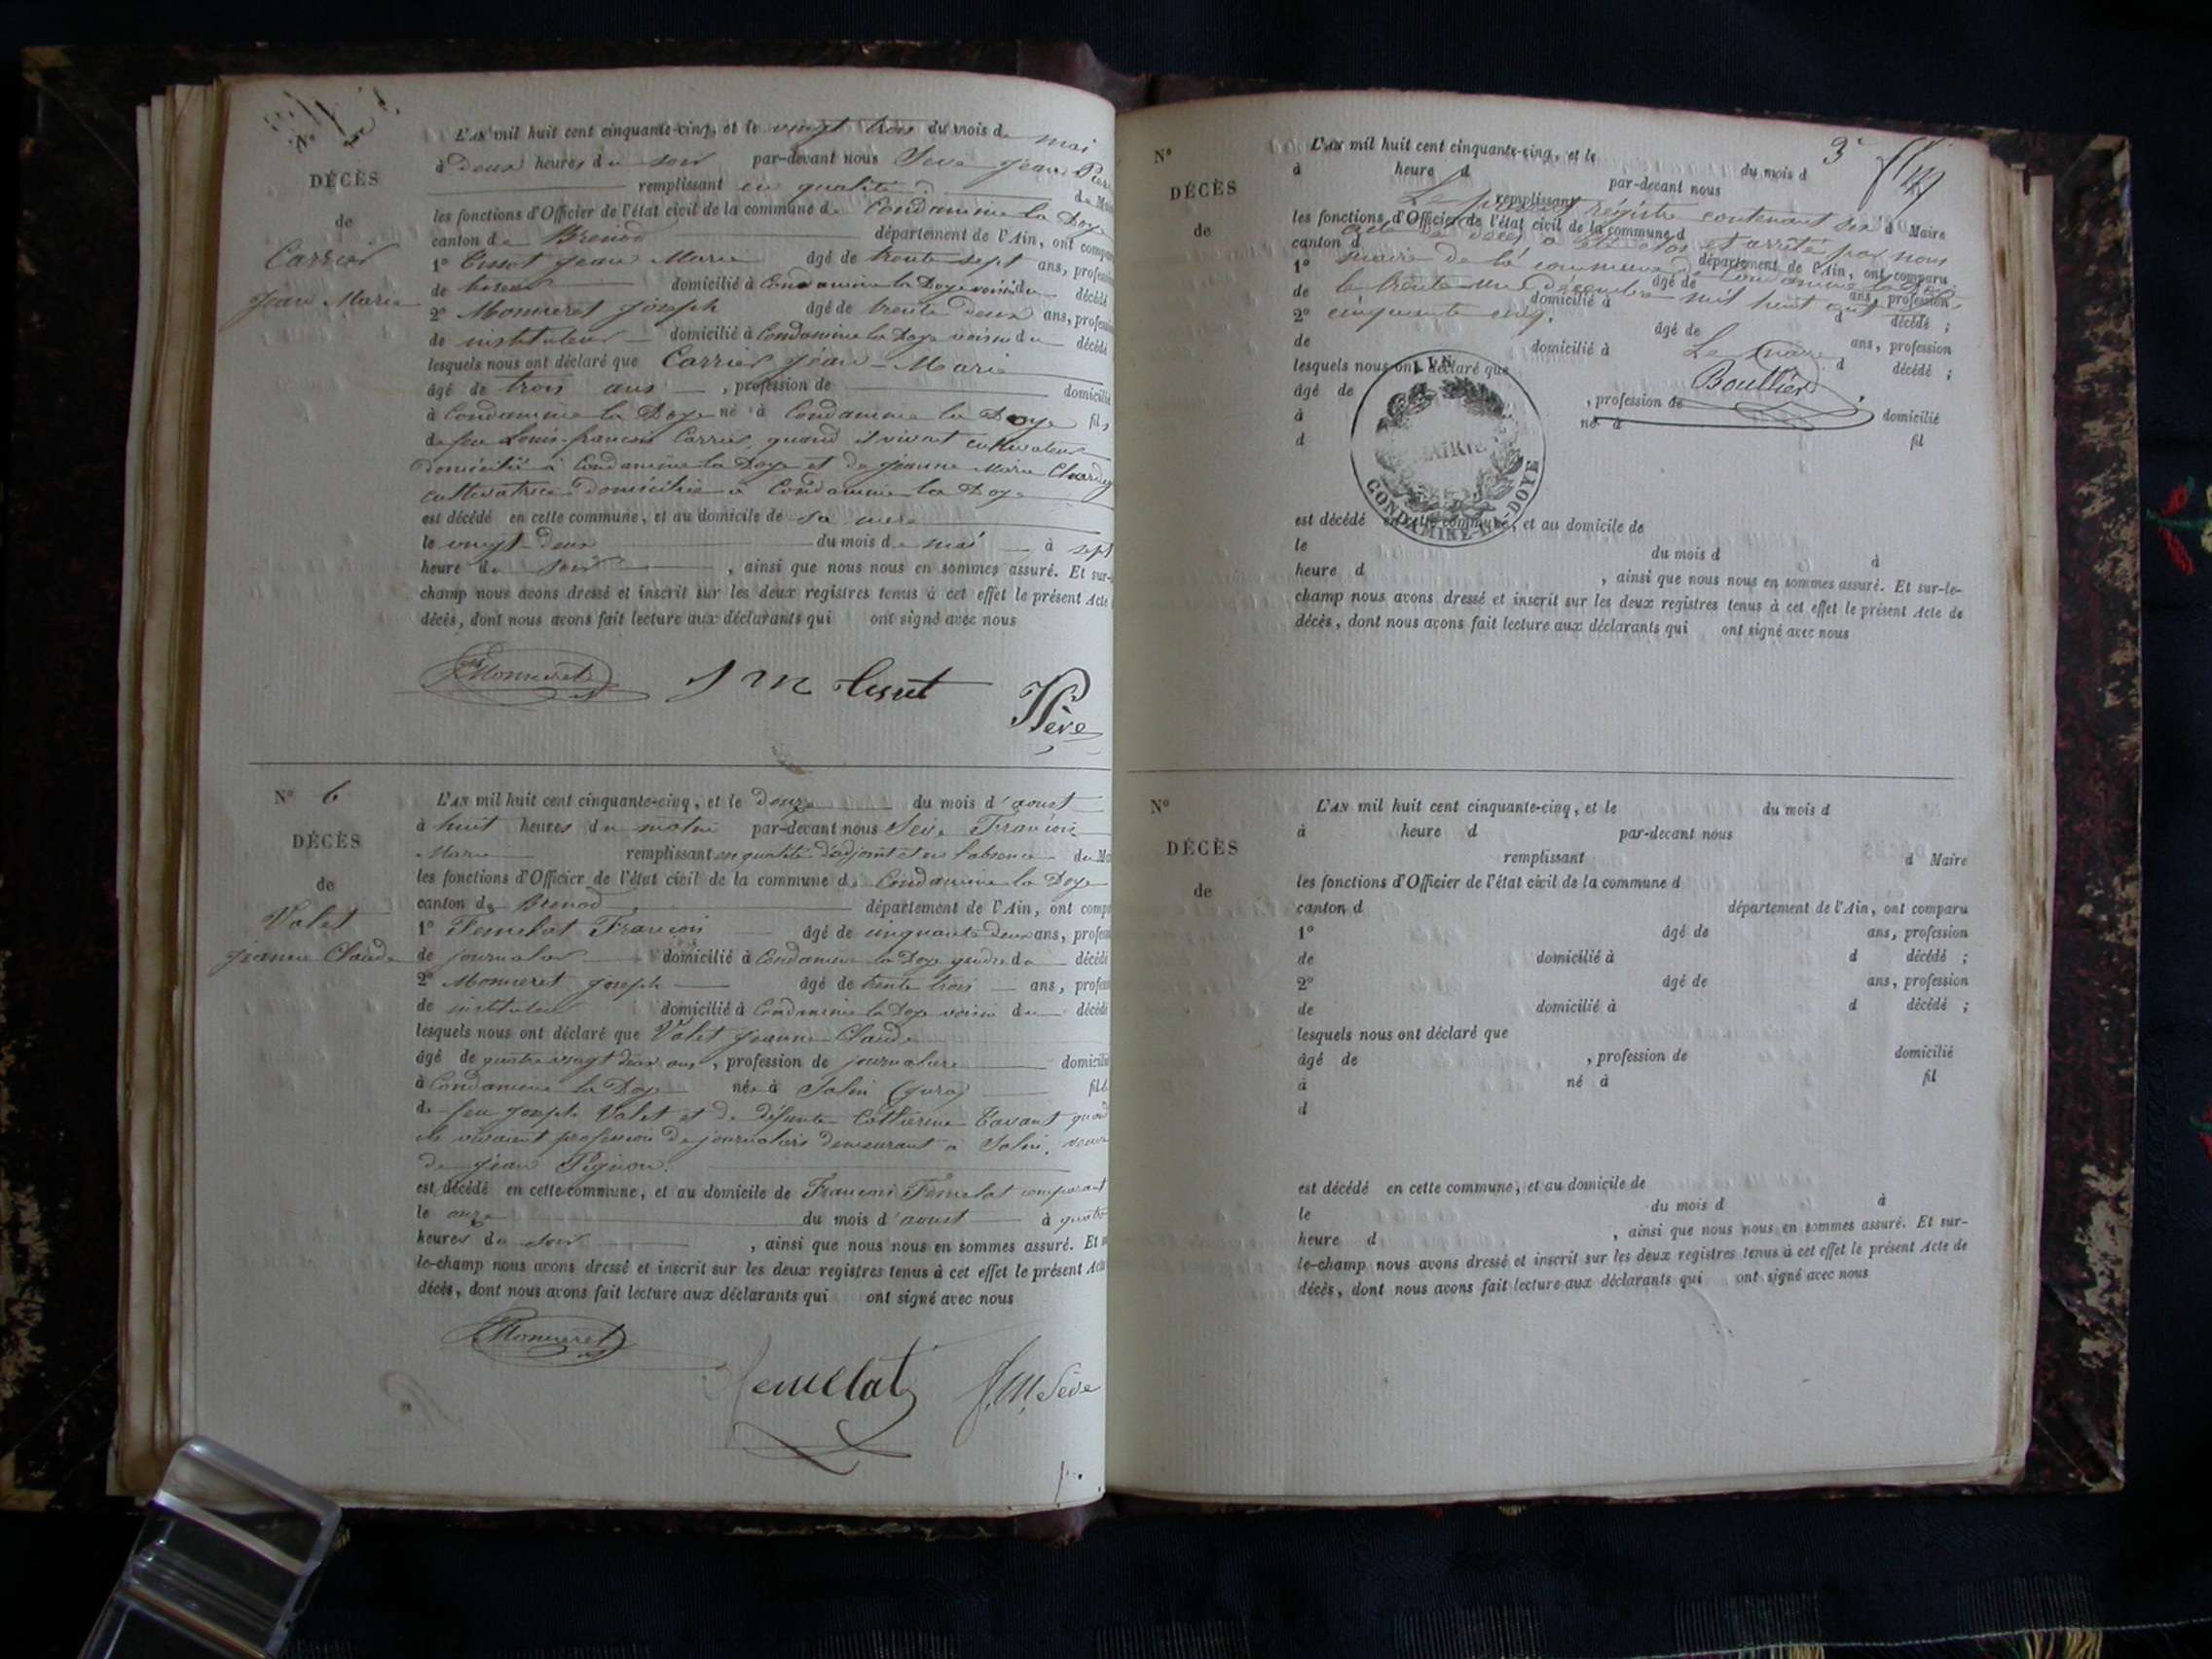 N° 5
DÉCÈS
de
Carrier
Jean Marie
L'AN mil huit cent cinquante-cinq, et le vingt trois du mois de mai
à deux heures du soir par-devant nous Seve Jean Pier
remplissant en qualité d de Ma
les fonctions d'Officier de l'état civil de la commune de Condamine la Doye
canton de Brenod département de l'Ain, ont compa
1° Tissot Jean Marie âgé de trente sept ans, profession
de domicilié à Condamine la Doye voisin du décédé
2° Monneret Joseph âgé de trente deux ans, profession
de instituteur domicilié à Condamine la Doye voisin du décédé
lesquels nous ont déclaré que Carrier Jean-Marie
âgé de trois ans , profession de domicilié
à Condamine la Doye né à Condamine la Doye fils
de feu Louis-françois Carrier quand il vivait cultivateur
domicilié à Condamine la Doye et de Jeanne Marie
cultivatrice domiciliée à Condamine la Doye
est décédé en cette commune, et au domicile de sa mere
le vingt-deux du mois de mai à sept
heure du soir , ainsi que nous nous en sommes assuré. Et sur-
champ nous avons dressé et inscrit sur les deux registres tenus à cet effet le présent Acte
décès, dont nous avons fait lecture aux déclarants qui ont signé avec nous
Monneret J M Tissot Sève
N° 6
DÉCÈS
de
Valet
Jeanne Claude
L'AN mil huit cent cinquante-cinq, et le douze du mois d'aoust
à huit heures du matin par-devant nous Seve François
Marie remplissant en qualité d'adjoint et en l'absence du Ma
les fonctions d'Officier de l'état civil de la commune de Condamine la Doye
canton de Brenod département de l'Ain, ont compa
1° Femelat François âgé de cinquante deux ans, profes
de journalier domicilié à Condamine la Doye gendre de décédé
2° Monneret Joseph âgé de trente trois ans, profes
de instituteur domicilié à Condamine la Doye voisin du décédé
lesquels nous ont déclaré que Valet Jeanne Claude
âgé de quatre vingt deux ans, profession de journalière domicilié
à Condamine la Doye née à Salin (Jura) fille
de feu Joseph Valet et de défunte Catherine Tavant quand
ils vivaient profession de journaliers demeurant à Salin, veuve
de Jean Pignon.
est décédé en cette commune, et au domicile de François Femelat comparant
le onze du mois d'aoust à quatre
heures du soir , ainsi que nous nous en sommes assuré. Et s
le-champ nous avons dressé et inscrit sur les deux registres tenus à cet effet le présent Acte
décès, dont nous avons fait lecture aux déclarants qui ont signé avec nous
Monneret
Femelat f. M. Seve
3e
N°
DÉCÈS
de
L'AN mil huit cent cinquante-cinq, et le du mois d
à heure d par-devant nous
remplissant d Maire
Le présent régistre contenant six
les fonctions d'Officier de l'état civil de la commune d
acte de décès a été clos et arrêté par nous
canton d département de l'Ain, ont comparu
maire de la commune de Condamine la Doye
1° âgé de ans, profession
le trente un Decembre mil huit cent
de domicilié à d décédé ;
cinquante cinq.
2° âgé de ans, profession
de domicilié à d décédé ;
Le Maire
lesquels nous ont déclaré que
Bouttier
âgé de , profession de domicilié
à né à fil
d
AIN
MAIRIE
CONDAMINE-LA-DOYE
est décédé en cette commune, et au domicile de
le du mois d à
heure d , ainsi que nous nous en sommes assuré. Et sur-le-
champ nous avons dressé et inscrit sur les deux registres tenus à cet effet le présent Acte de
décès, dont nous avons fait lecture aux déclarants qui ont signé avec nous
N°
DÉCÈS
de
L'AN mil huit cent cinquante-cinq, et le du mois d
à heure d par-devant nous
remplissant d Maire
les fonctions d'Officier de l'état civil de la commune d
canton d département de l'Ain, ont comparu
1° âgé de ans, profession
de domicilié à d décédé ;
2° âgé de ans, profession
de domicilié à d décédé ;
lesquels nous ont déclaré que
âgé de , profession de domicilié
à né à fil
d
est décédé en cette commune, et au domicile de
le du mois d à
heure d , ainsi que nous nous en sommes assuré. Et sur-
le-champ nous avons dressé et inscrit sur les deux registres tenus à cet effet le présent Acte de
décès, dont nous avons fait lecture aux déclarants qui ont signé avec nous